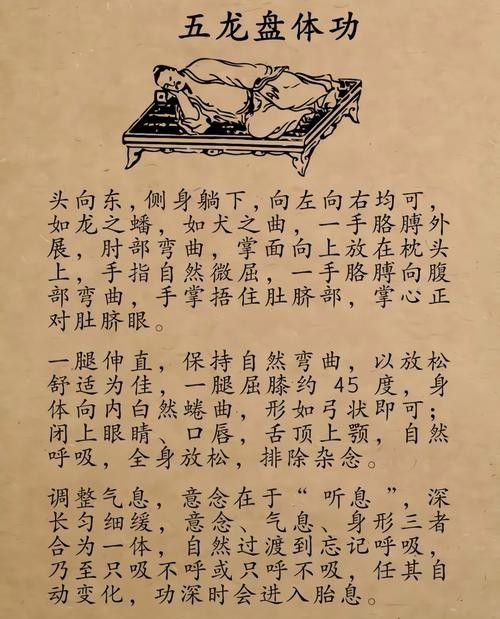 五龙盘体功
头向东，侧身躺下，向左向右均可，
如龙之蟠，如犬之曲，一手胳膊外
展，肘部弯曲，掌面向上放在枕头
上，手指自然微屈，一手胳膊向腹
部弯曲，手掌捂住肚脐部，掌心正
对肚脐眼。
一腿伸直，保持自然弯曲，以放松
舒适为佳，一腿屈膝约 45 度，身
体向内白然蜷曲，形如弓状即可；
闭上眼睛、口唇，舌顶上颚，自然
呼吸，全身放松，排除杂念。
调整气息，意念在于“听息”，深
长匀细缓，意念、气息、身形三者
合为一体，自然过渡到忘记呼吸，
乃至只吸不呼或只呼不吸，任其自
动变化，功深时会进入胎息。